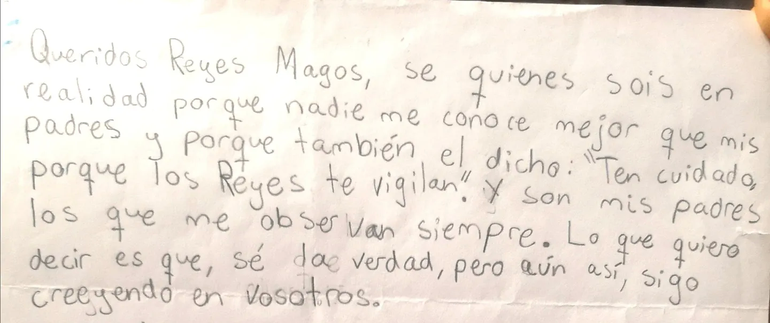 Queridos Reyes Magos, se quienes sois en
realidad porque nadie me conoce mejor que mis
padres y porque también el dicho: "Ten cuidado,
porque los Reyes te vigilan". Y son mis padres
los que me observan siempre. Lo que quiero
decir es que, sé la verdad, pero aún así, sigo
creeyendo en vosotros.